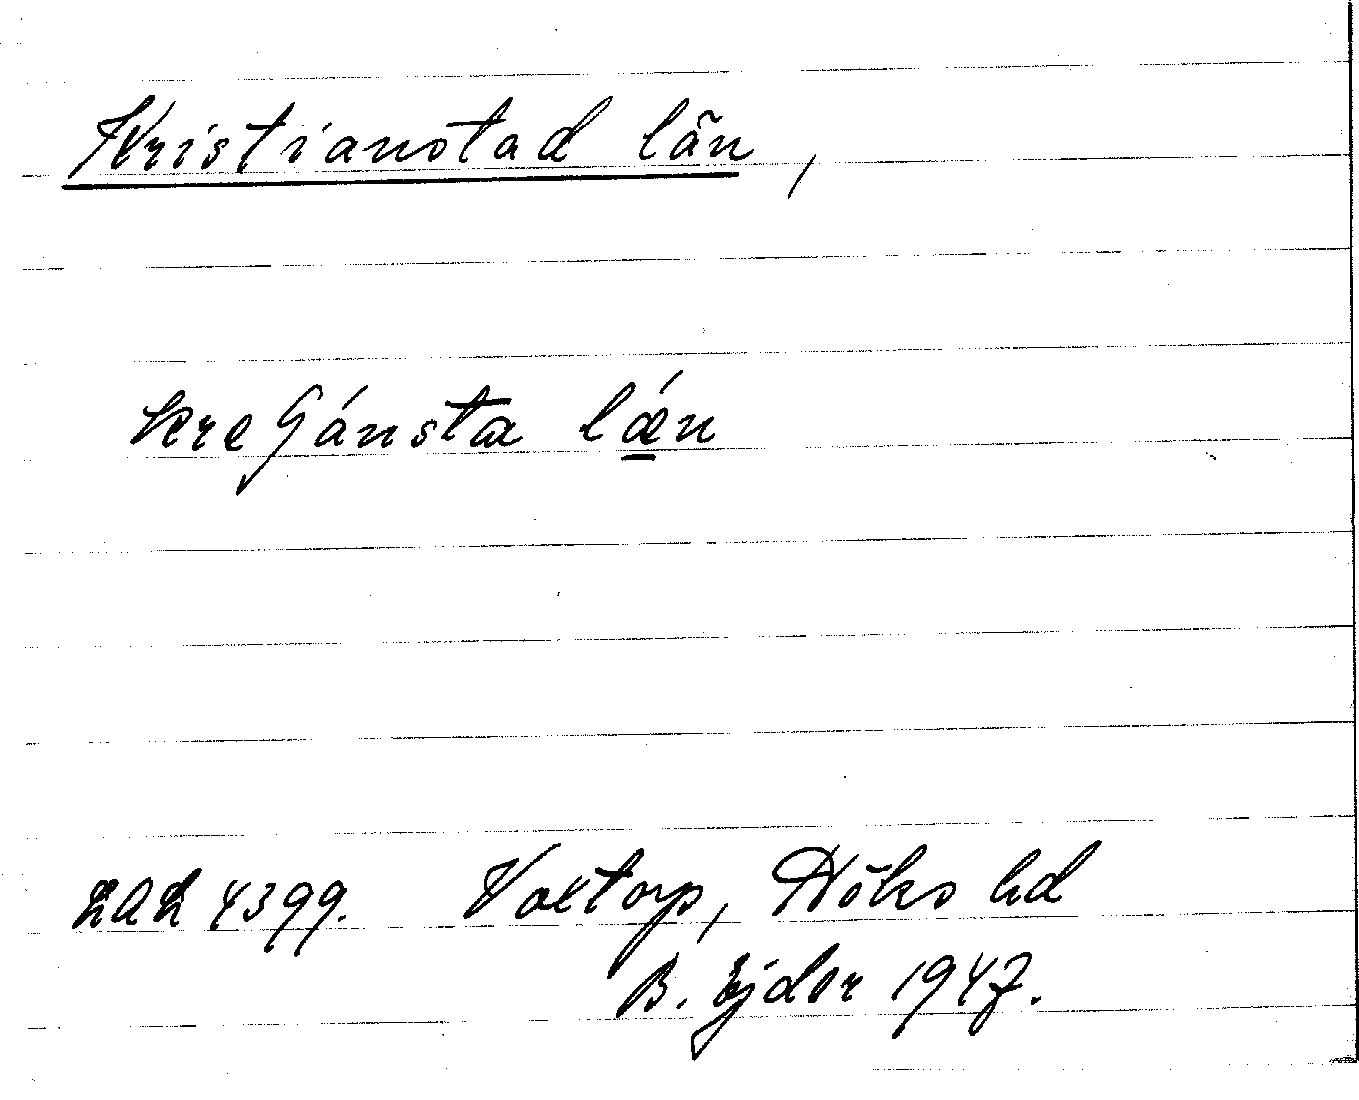 Kristianstad län,
kreʃánsta lǽn
LAL 4399. Voxtorp, Höks hd
B. Ejder 1947.